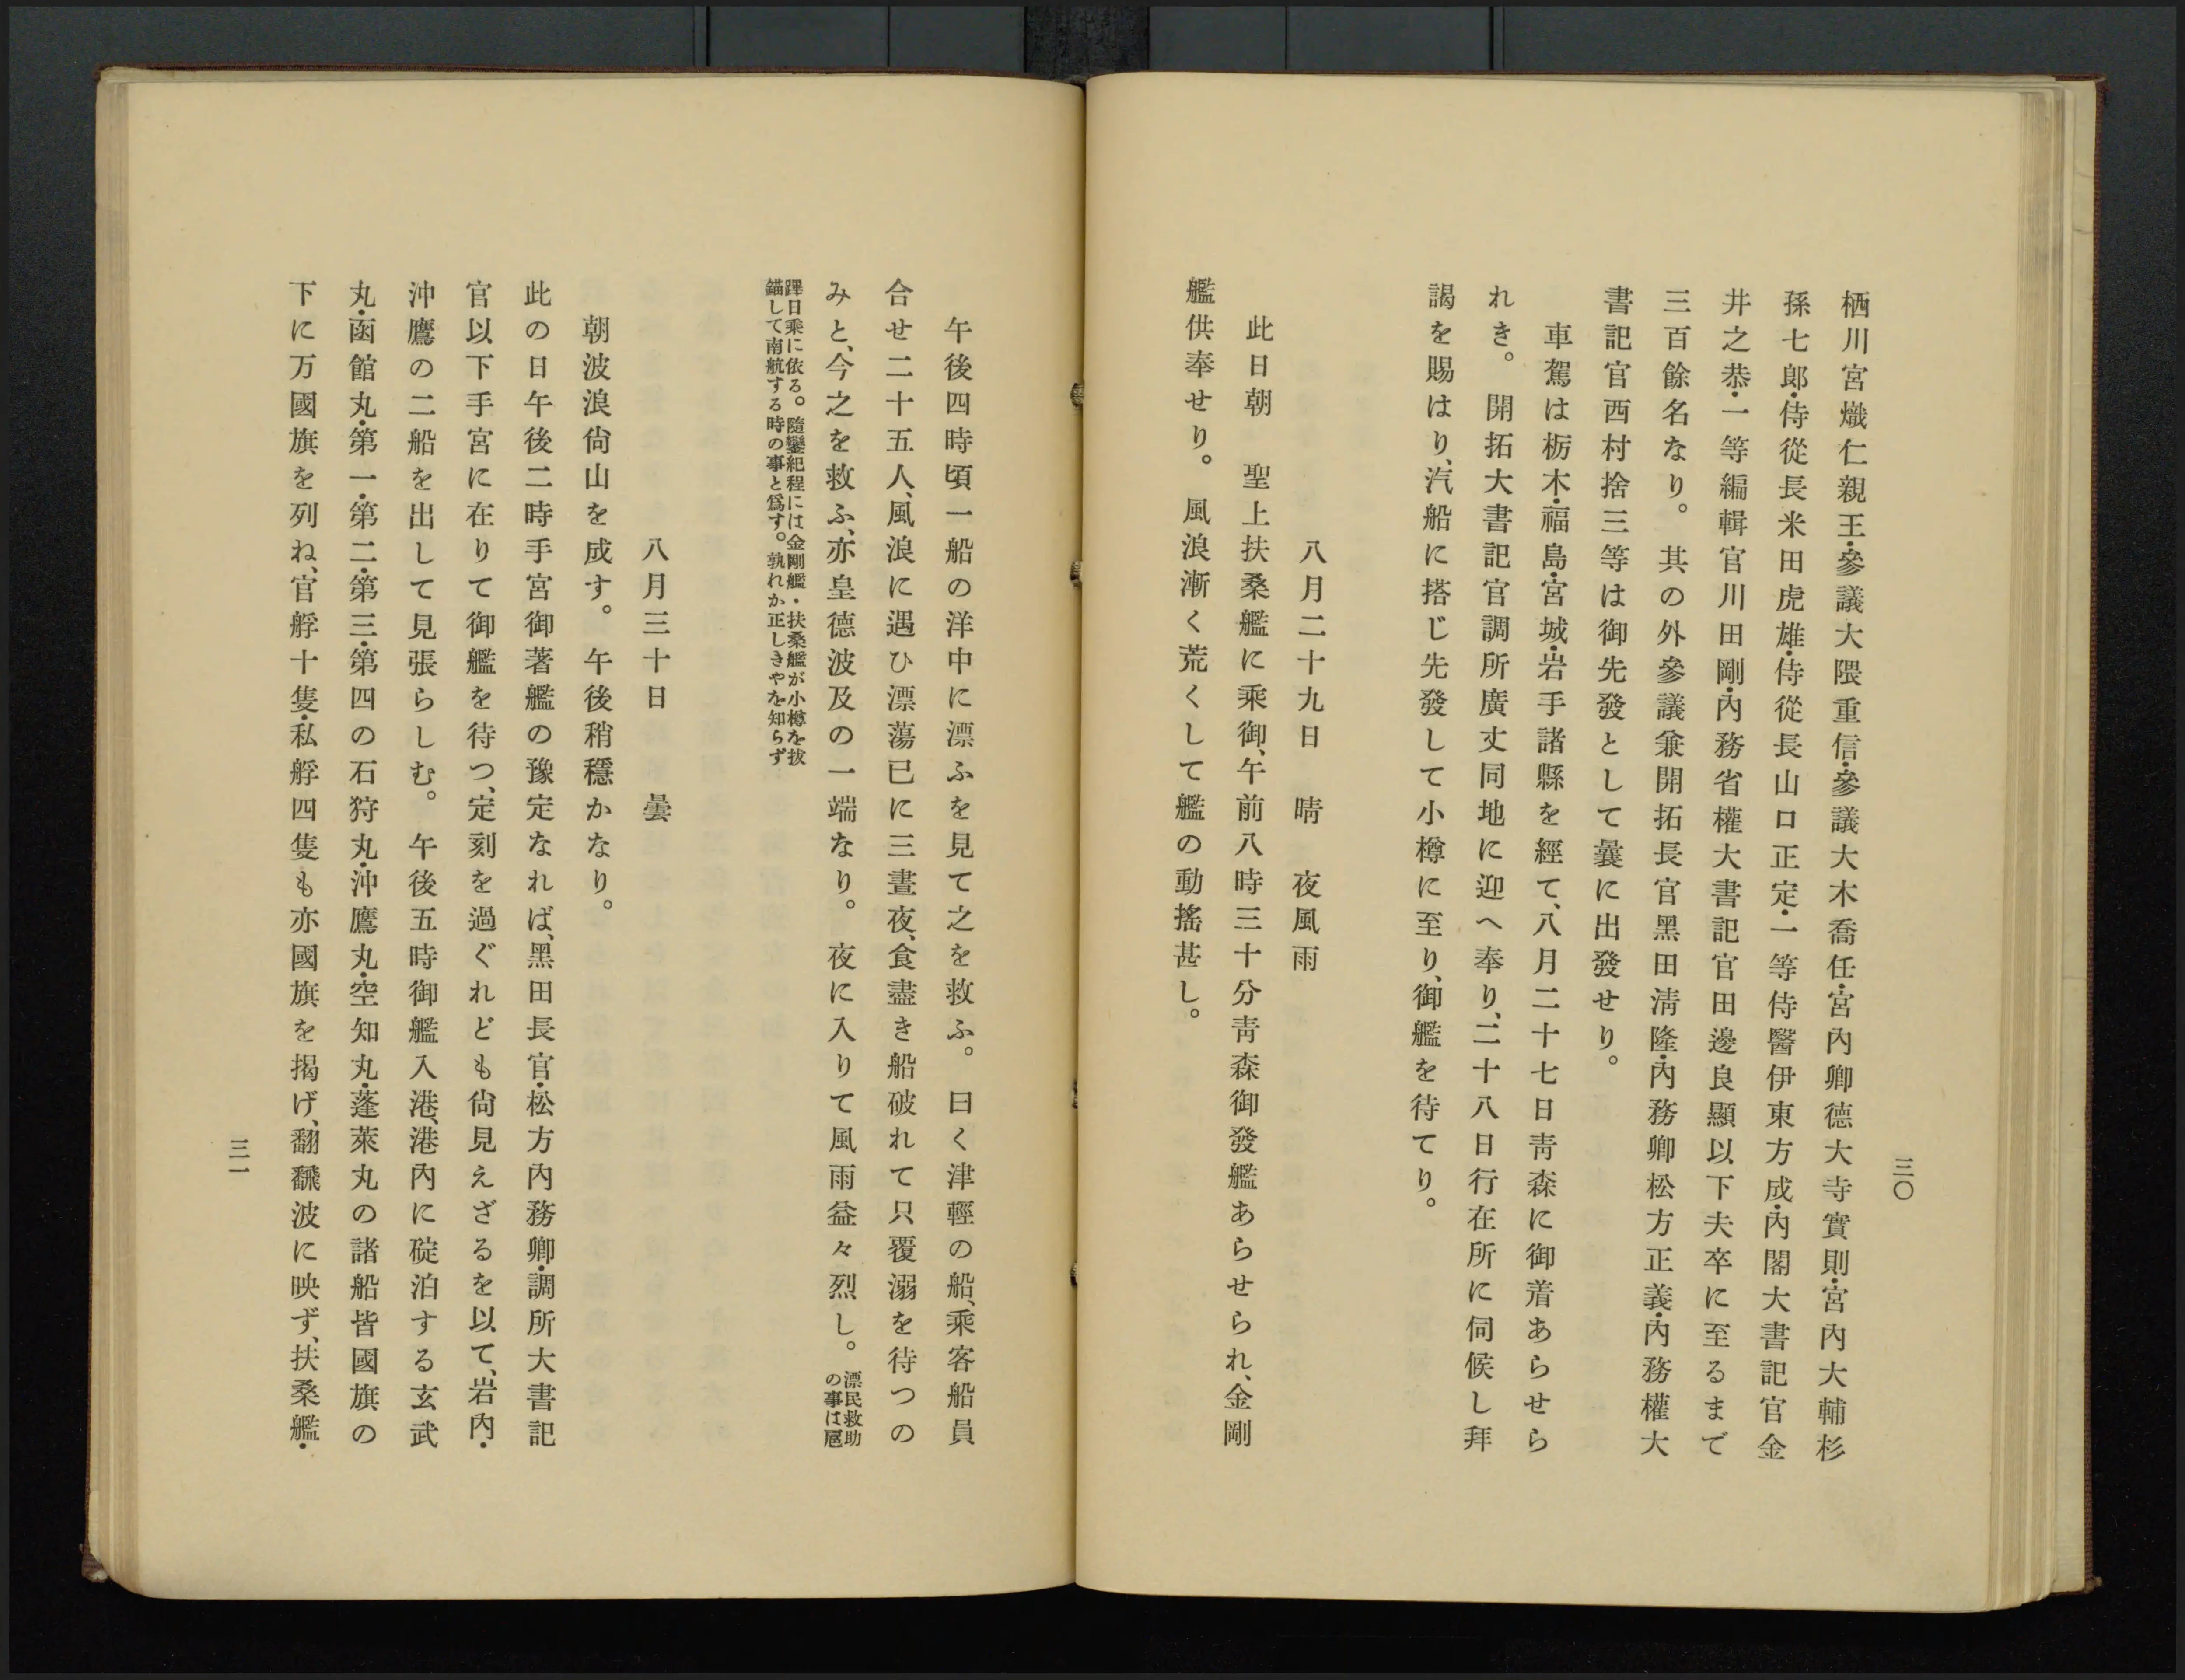 三〇
栖川宮熾仁親王・參議大隈重信・參議大木喬任・宮內卿德大寺實則・宮內大輔杉
孫七郎・侍從長米田虎雄・侍從長山口正定・一等侍醫伊東方成・內閣大書記官金
井之恭・一等編輯官川田剛・內務省權大書記官田邊良顯以下夫卒に至るまで
三百餘名なり。其の外參議兼開拓長官黑田淸隆・內務卿松方正義・內務權大
書記官西村捨三等は御先發として曩に出發せり。
車駕は栃木・福島・宮城・岩手諸縣を經て、八月二十七日靑森に御着あらせら
れき。開拓大書記官調所廣丈同地に迎へ奉り、二十八日行在所に伺候し拜
謁を賜はり、汽船に搭じ先發して小樽に至り、御艦を待てり。
八月二十九日　晴　夜風雨
此日朝　聖上扶桑艦に乘御、午前八時三十分靑森御發艦あらせられ、金剛
艦供奉せり。風浪漸く荒くして艦の動搖甚し。
午後四時頃一船の洋中に漂ふを見て之を救ふ。曰く津輕の船、乘客船員
合せ二十五人、風浪に遇ひ漂蕩已に三晝夜、食盡き船破れて只覆溺を待つの
みと、今之を救ふ、亦皇德波及の一端なり。夜に入りて風雨益々烈し。漂民救助
の事は扈
蹕日乘に依る。隨鑾紀程には金剛艦・扶桑艦が小樽を拔
錨して南航する時の事と爲す。孰れか正しきやを知らず
八月三十日　曇
朝波浪尙山を成す。午後稍穩かなり。
此の日午後二時手宮御著艦の豫定なれば、黑田長官・松方內務卿・調所大書記
官以下手宮に在りて御艦を待つ、定刻を過ぐれども尙見えざるを以て、岩內・
沖鷹の二船を出して見張らしむ。午後五時御艦入港、港內に碇泊する玄武
丸・函館丸・第一・第二・第三・第四の石狩丸・沖鷹丸・空知丸・蓬萊丸の諸船皆國旗の
下に万國旗を列ね、官艀十隻・私艀四隻も亦國旗を揭げ、翻飜波に映ず、扶桑艦・
三一